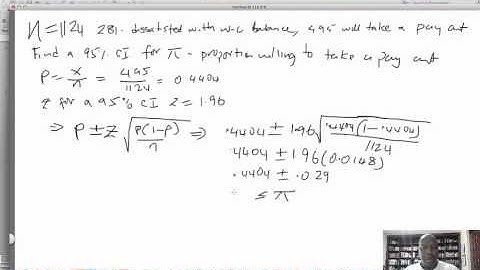 n=1124 281 dissatisfied with w-l balance, 495 will take a pay cut
Find a 95% CI for π - proportion willing to take a pay cut
P = x/n = 495/1124 = 0.4404
z for a 95% CI z = 1.96
⇒ P ± z √(P(1-P)/n) ⇒ .4404 ± 1.96 √(.4404(1-.4404)/1124)
.4404 ± 1.96 (0.0148)
.4404 ± .029
≤ π